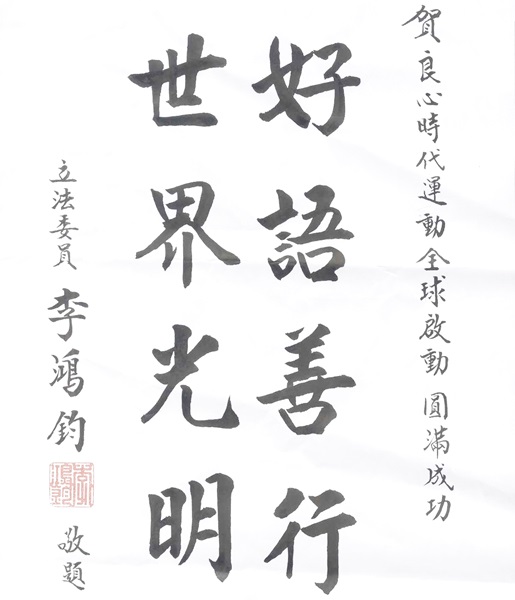 賀良心時代運動全球啟動 圓滿成功
好語善行
世界光明
立法委員 李鴻鈞 敬題